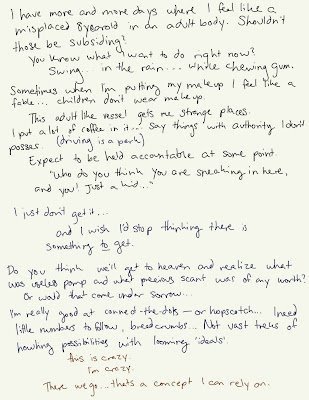 I have more and more days where I feel like a
misplaced 8 year old in an adult body. Shouldn't
those be subsiding?
You know what I want to do right now?
Swing... in the rain... while chewing gum.
Sometimes when I'm putting my makeup I feel like a
fake... children don't wear makeup.
This adult like vessel gets me strange places.
I put a lot of coffee in it... Say things with authority I don't
posses. (driving is a perk)
Expect to be held accountable at some point.
"Who do you think you are sneaking in here,
and you! Just a kid..."
I just don't get it...
and I wish I'd stop thinking there is
something to get.
Do you think we'll get to heaven and realize what
was useless pomp and what precious scant was of any worth?
Or would that come under sorrow...
I'm really good at connect-the-dots — or hopscotch... I need
little numbers to follow, breadcrumbs... Not vast treks of
howling possibilities with looming 'ideals'.
this is crazy.
I'm crazy.
There we go... thats a concept I can rely on.